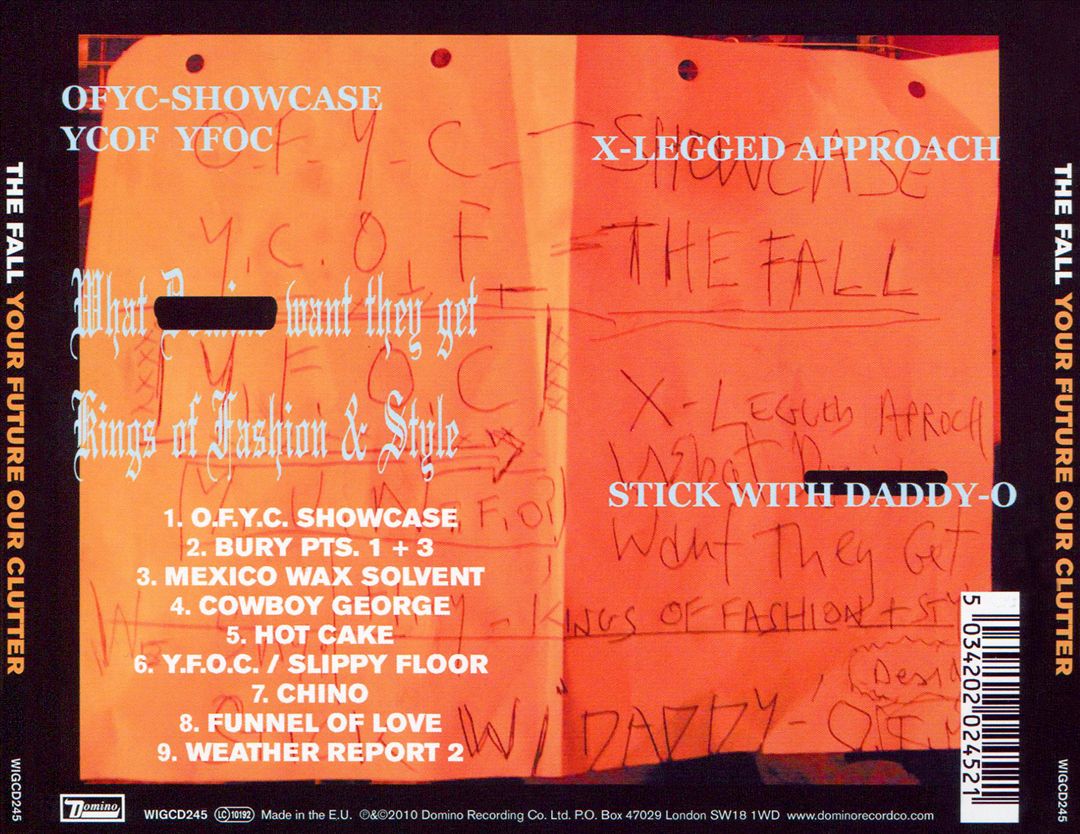 OFYC-SHOWCASE
YCOF YFOC
X-LEGGED APPROACH
What Domino want they get
Kings of Fashion & Style
STICK WITH DADDY-O
1. O.F.Y.C. SHOWCASE
2. BURY PTS. 1 + 3
3. MEXICO WAX SOLVENT
4. COWBOY GEORGE
5. HOT CAKE
6. Y.F.O.C. / SLIPPY FLOOR
7. CHINO
8. FUNNEL OF LOVE
9. WEATHER REPORT 2
O.F.Y.C - SHOWCASE
Y.C.O.F = THE FALL
Y F O C
X - LEGGED APROCH
What
Want They Get
KINGS OF FASHION + STY
W/ DADDY - O
THE FALL YOUR FUTURE OUR CLUTTER
WIGCD245
THE FALL YOUR FUTURE OUR CLUTTER
WIGCD245
5 034202 024521
Domino
WIGCD245 LC 10192 Made in the E.U. ℗&©2010 Domino Recording Co. Ltd. P.O. Box 47029 London SW18 1WD www.dominorecordco.com